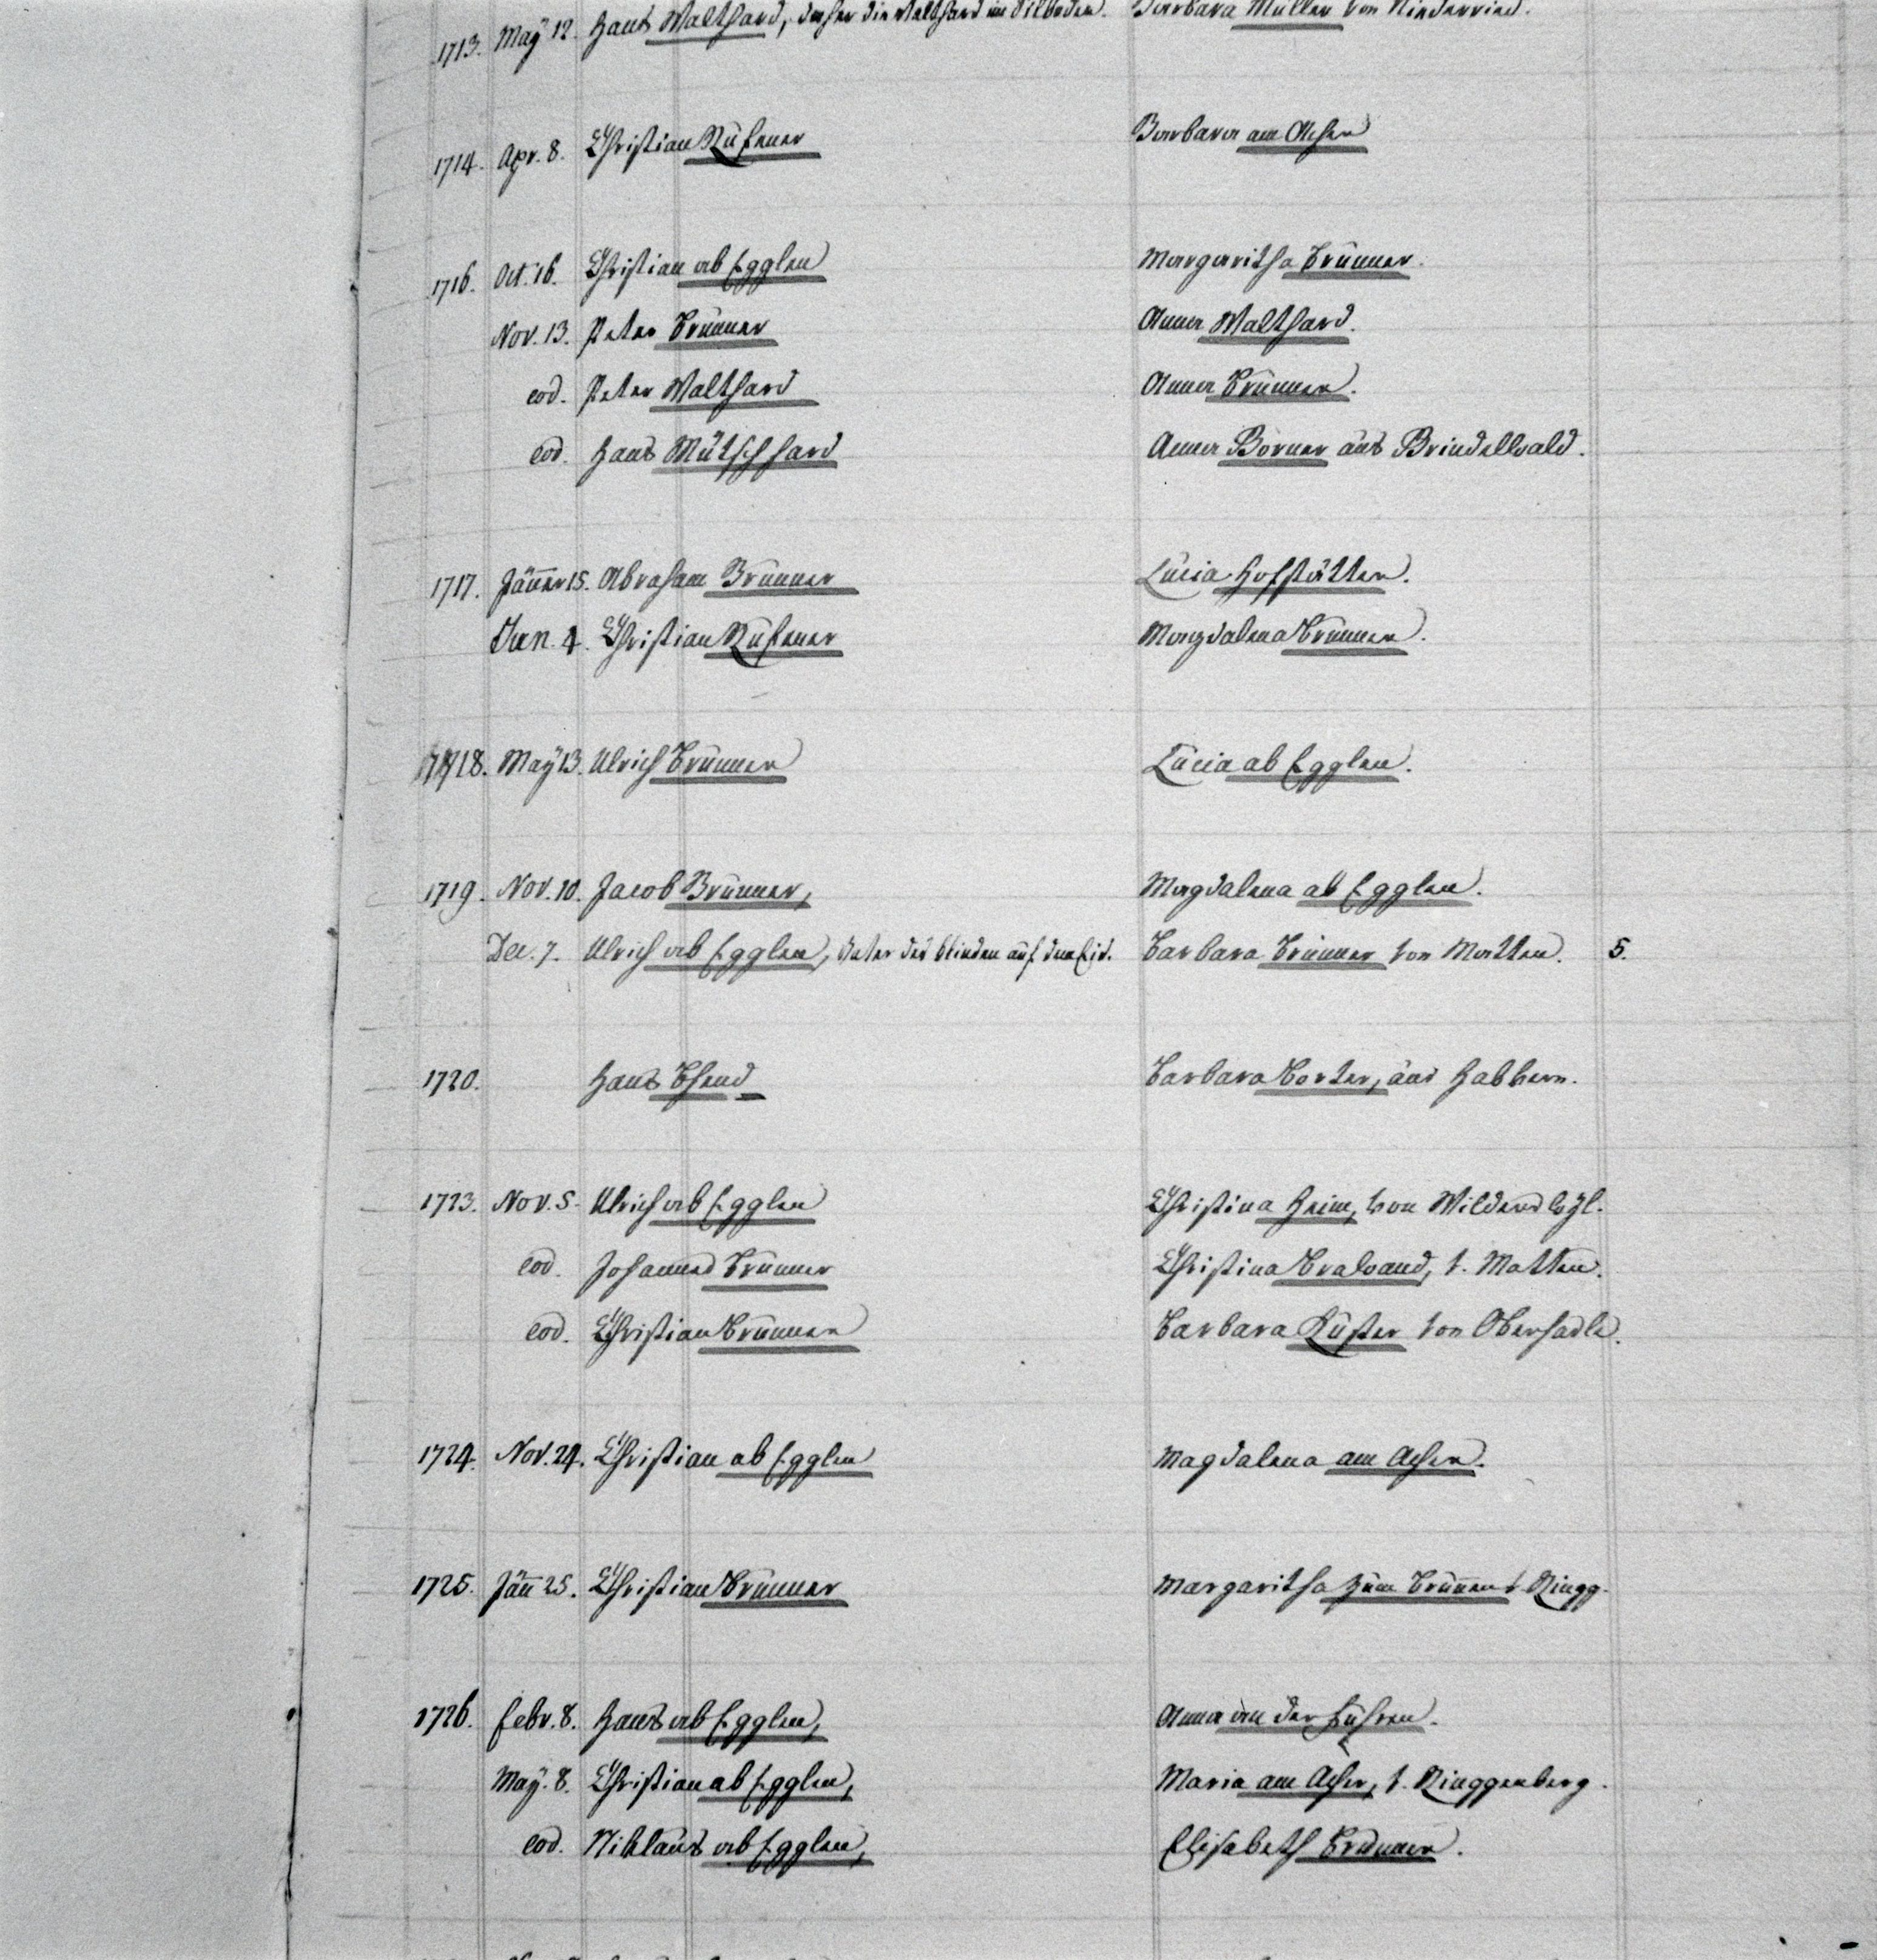 1713. May 12. Hans Walthard, daher die Walthard im Dilboden. Barbara Müller von Niederried.
1714. Apr. 8. Christian Rüfener Barbara am Acher
1716. Oct. 16. Christian ab Egglen Margaritha Brunner.
Nov. 13. Peter Brunner Anna Walthard.
eod. Peter Walthard Anna Brunner.
eod. Hans Mütschhard Anna Borner aus Grindelwald.
1717. Jänner 15. Abraham Brunner Lucia Hofstätter.
Jun. 4. Christian Rüfener Magdalena Brunner.
1718. May 13. Ulrich Brunner Lucia ab Egglen.
1719. Nov. 10. Jacob Brunner, Magdalena ab Egglen.
Dec. 7. Ulrich ab Egglen, Vater des blinden auf dem Eid. Barbara Brunner von Matten. 5.
1720. Hans Bhend Barbara Borter, aus Habkern.
1723. Nov. 5. Ulrich ab Egglen Christina Heim, von Wilderswyl.
eod. Johannes Brunner Christina Brawand, v. Matten.
eod. Christian Brunner Barbara Luster von Oberhasle.
1724. Nov. 24. Christian ab Egglen Magdalena am Acher.
1725. Jän 25. Christian Brunner Margaritha zum Brunnen v Ringg.
1726. Febr. 8. Hans ab Egglen, Anna an der Fuhren.
May. 8. Christian ab Egglen, Maria am Acher, v. Ringgenberg.
eod. Niklaus ab Egglen, Elisabeth Brunner.